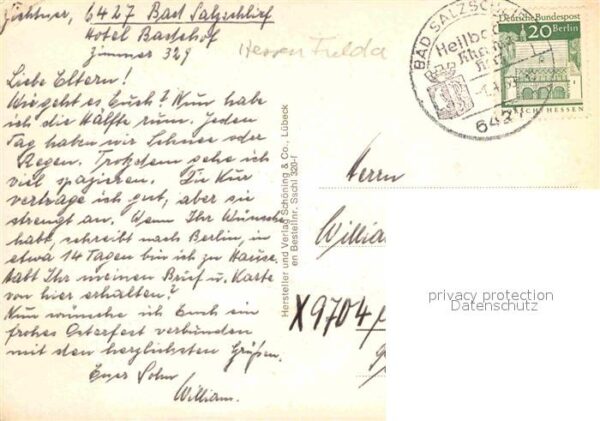 6427 Bad Salzschlirf
Hotel Badehof
Zimmer 329
Herren Fulda
Liebe Eltern!
Wie geht es Euch? Nun habe
ich die Hälfte rum. Jeden
Tag haben wir Schnee oder
Regen. Trotzdem gehe ich
viel spazieren. Die Kur
vertrage ich gut, aber sie
strengt an. Wenn Ihr Wünsche
habt, schreibt nach Berlin, in
etwa 14 Tagen bin ich zu Hause.
Habt Ihr meinen Brief u. Karte
von hier erhalten?
Nun wünsche ich Euch ein
frohes Osterfest verbunden
mit den herzlichsten Grüßen
Euer Sohn
William.
Hersteller und Verlag Schöning & Co., Lübeck
en Bestellnr. Sschl 320-f
BAD SALZSCHLIRF
Heilbad
6427
Deutsche Bundespost
20 Berlin
HESSEN
Herrn
William
X9704
privacy protection
Datenschutz